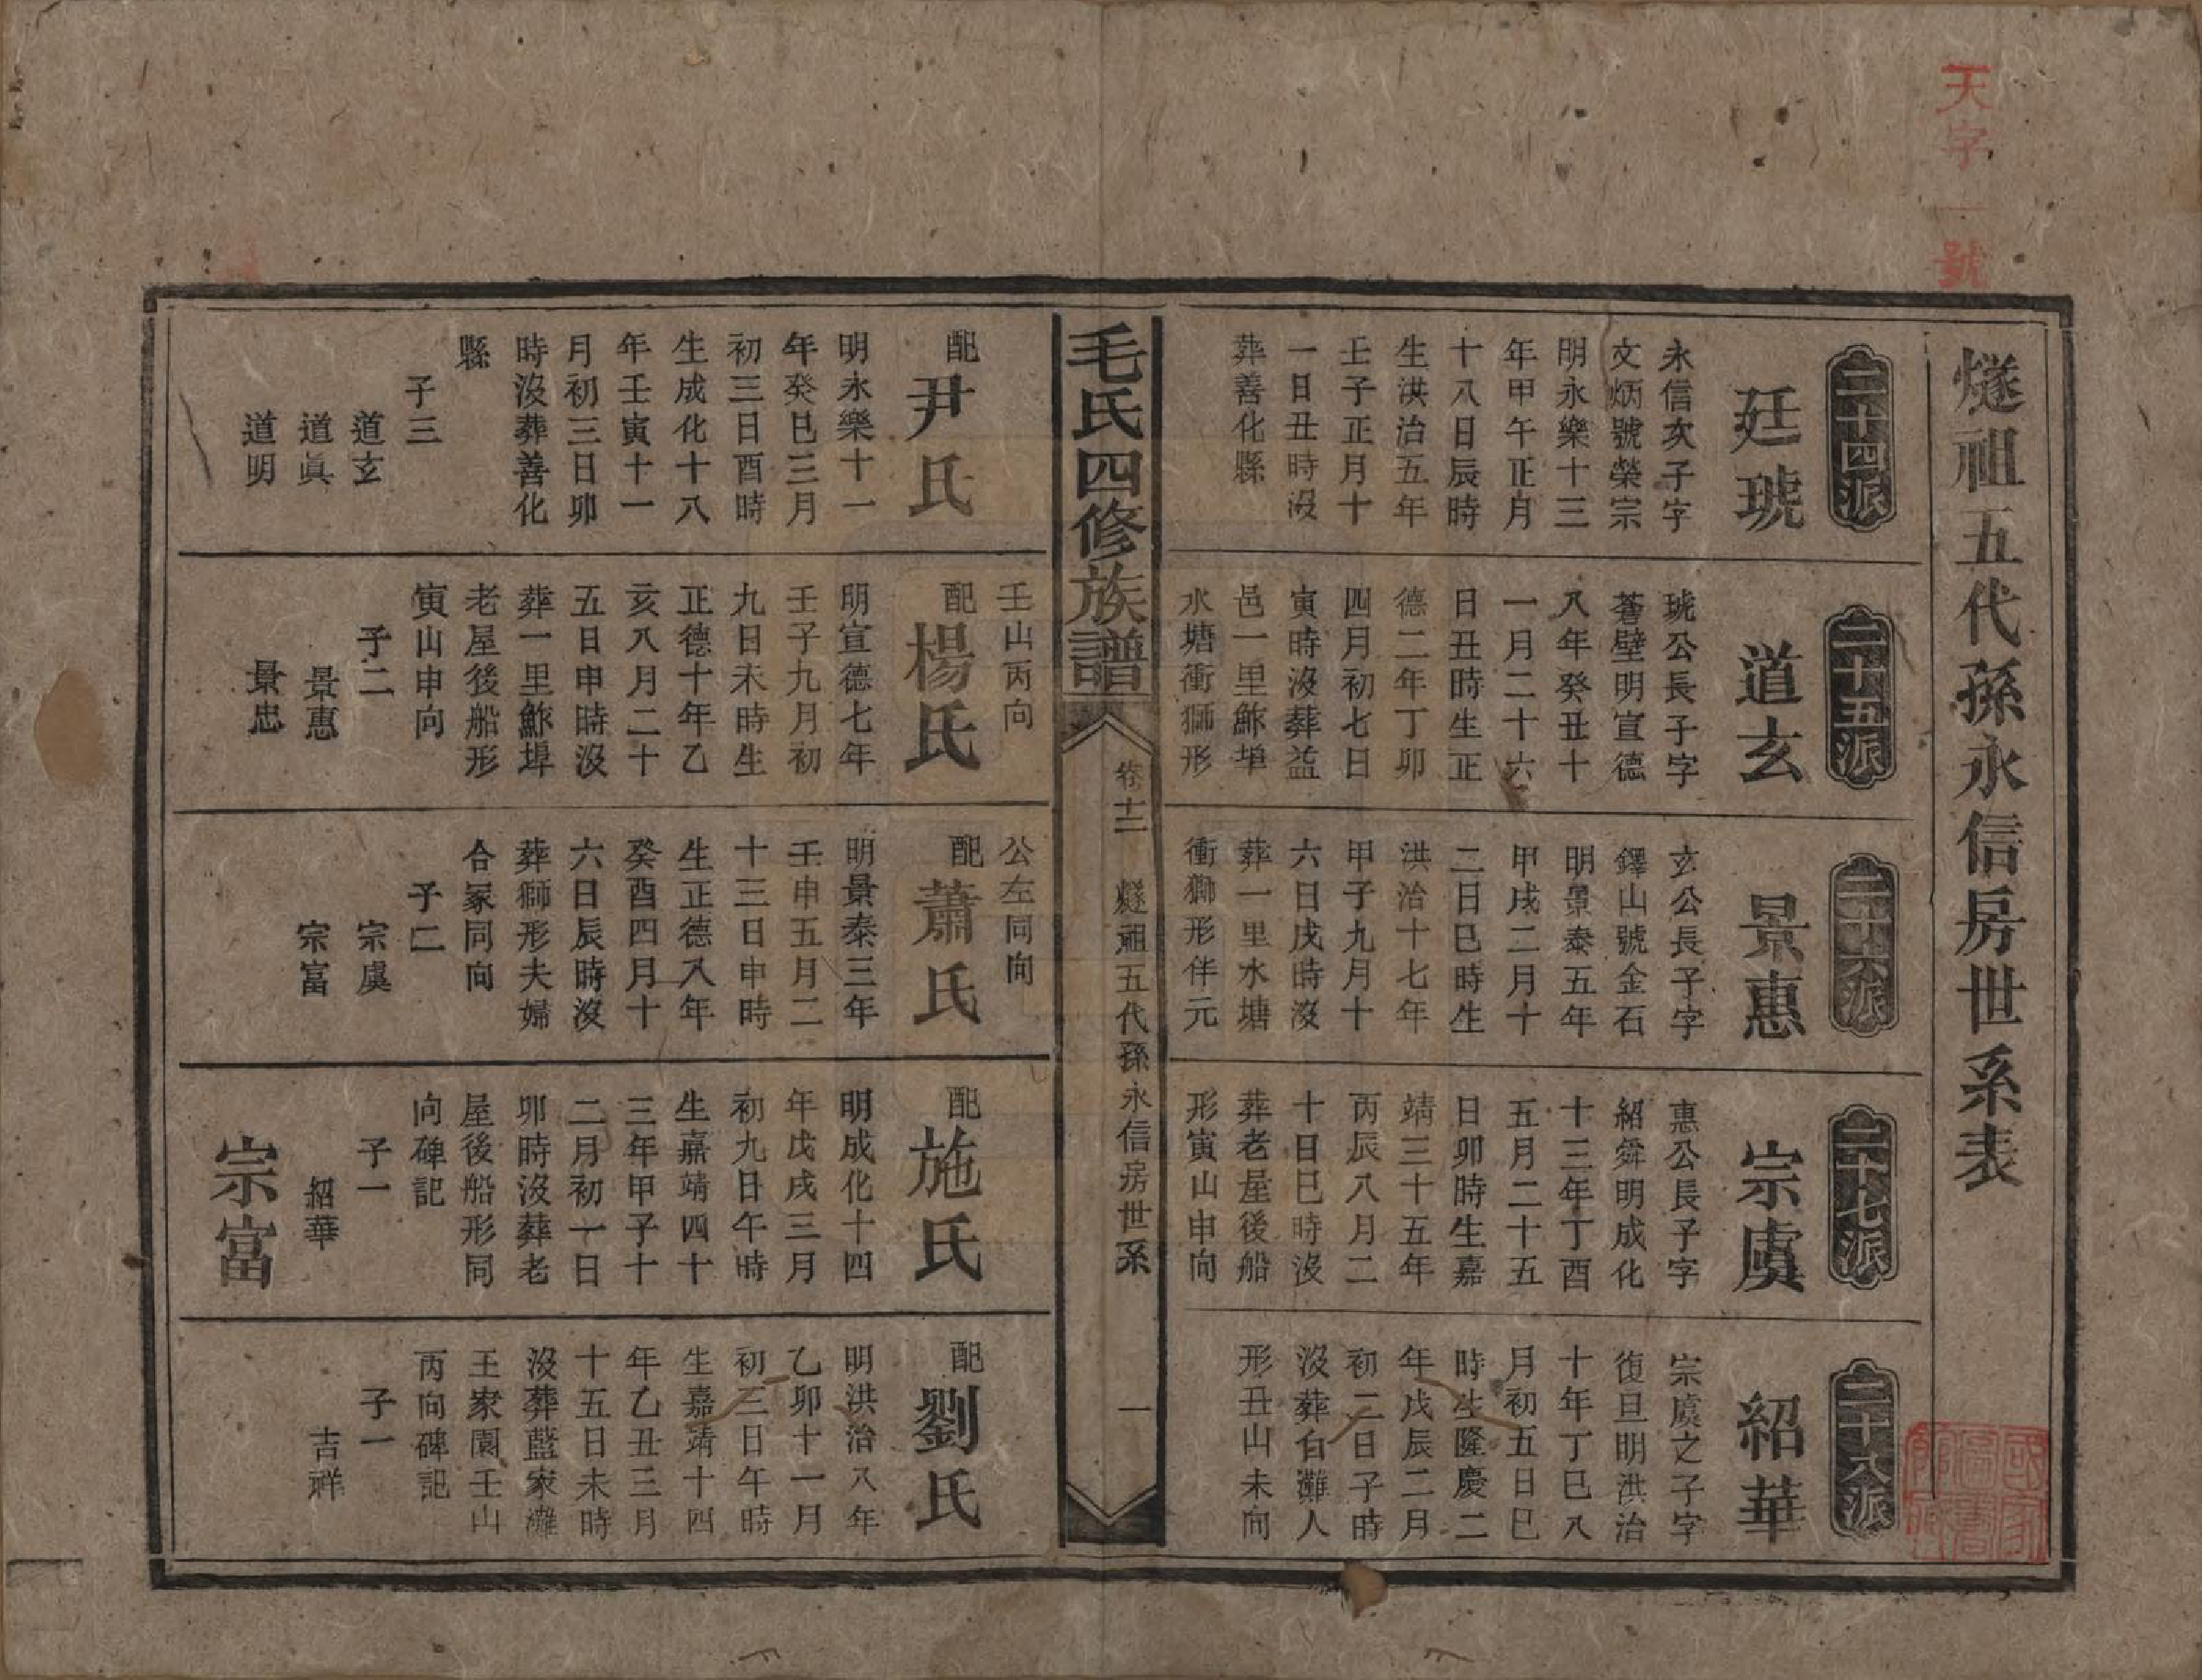 天字一號
燧祖五代孫永信房世系表
二十四派
廷琥
永信次子字
文炳號榮宗
明永樂十三
年甲午正月
十八日辰時
生洪治五年
壬子正月十
一日丑時沒
葬善化縣
二十五派
道玄
琥公長子字
蒼壁明宣德
八年癸丑十
一月二十六
日丑時生正
德二年丁卯
四月初七日
寅時沒葬益
邑一里鮓埠
水塘衝獅形
二十六派
景惠
玄公長子字
鐸山號金石
明景泰五年
甲戌二月十
二日巳時生
洪治十七年
甲子九月十
六日戌時沒
葬一里水塘
衝獅形伴元
二十七派
宗虞
惠公長子字
紹舜明成化
十三年丁酉
五月二十五
日卯時生嘉
靖三十五年
丙辰八月二
十日巳時沒
葬老屋後船
形寅山申向
二十八派
紹華
宗虞之子字
復旦明洪治
十年丁巳八
月初五日巳
時生隆慶二
年戊辰二月
初二日子時
沒葬白灘人
形丑山未向
毛氏四修族譜
卷十二
燧祖五代孫永信房世系
一
配
尹氏
明永樂十一
年癸巳三月
初三日酉時
生成化十八
年壬寅十一
月初三日卯
時沒葬善化
縣
子三
道玄
道眞
道明
壬山丙向
配
楊氏
明宣德七年
壬子九月初
九日未時生
正德十年乙
亥八月二十
五日申時沒
葬一里鮓埠
老屋後船形
寅山申向
子二
景惠
景忠
公左同向
配
蕭氏
明景泰三年
壬申五月二
十三日申時
生正德八年
癸酉四月十
六日辰時沒
葬獅形夫婦
合冢同向
子二
宗虞
宗富
配
施氏
明成化十四
年戊戌三月
初九日午時
生嘉靖四十
三年甲子十
二月初一日
卯時沒葬老
屋後船形同
向碑記
子一
紹華
宗富
配
劉氏
明洪治八年
乙卯十一月
初三日午時
生嘉靖十四
年乙丑三月
十五日未時
沒葬藍家灘
王家園壬山
丙向碑記
子一
吉祥